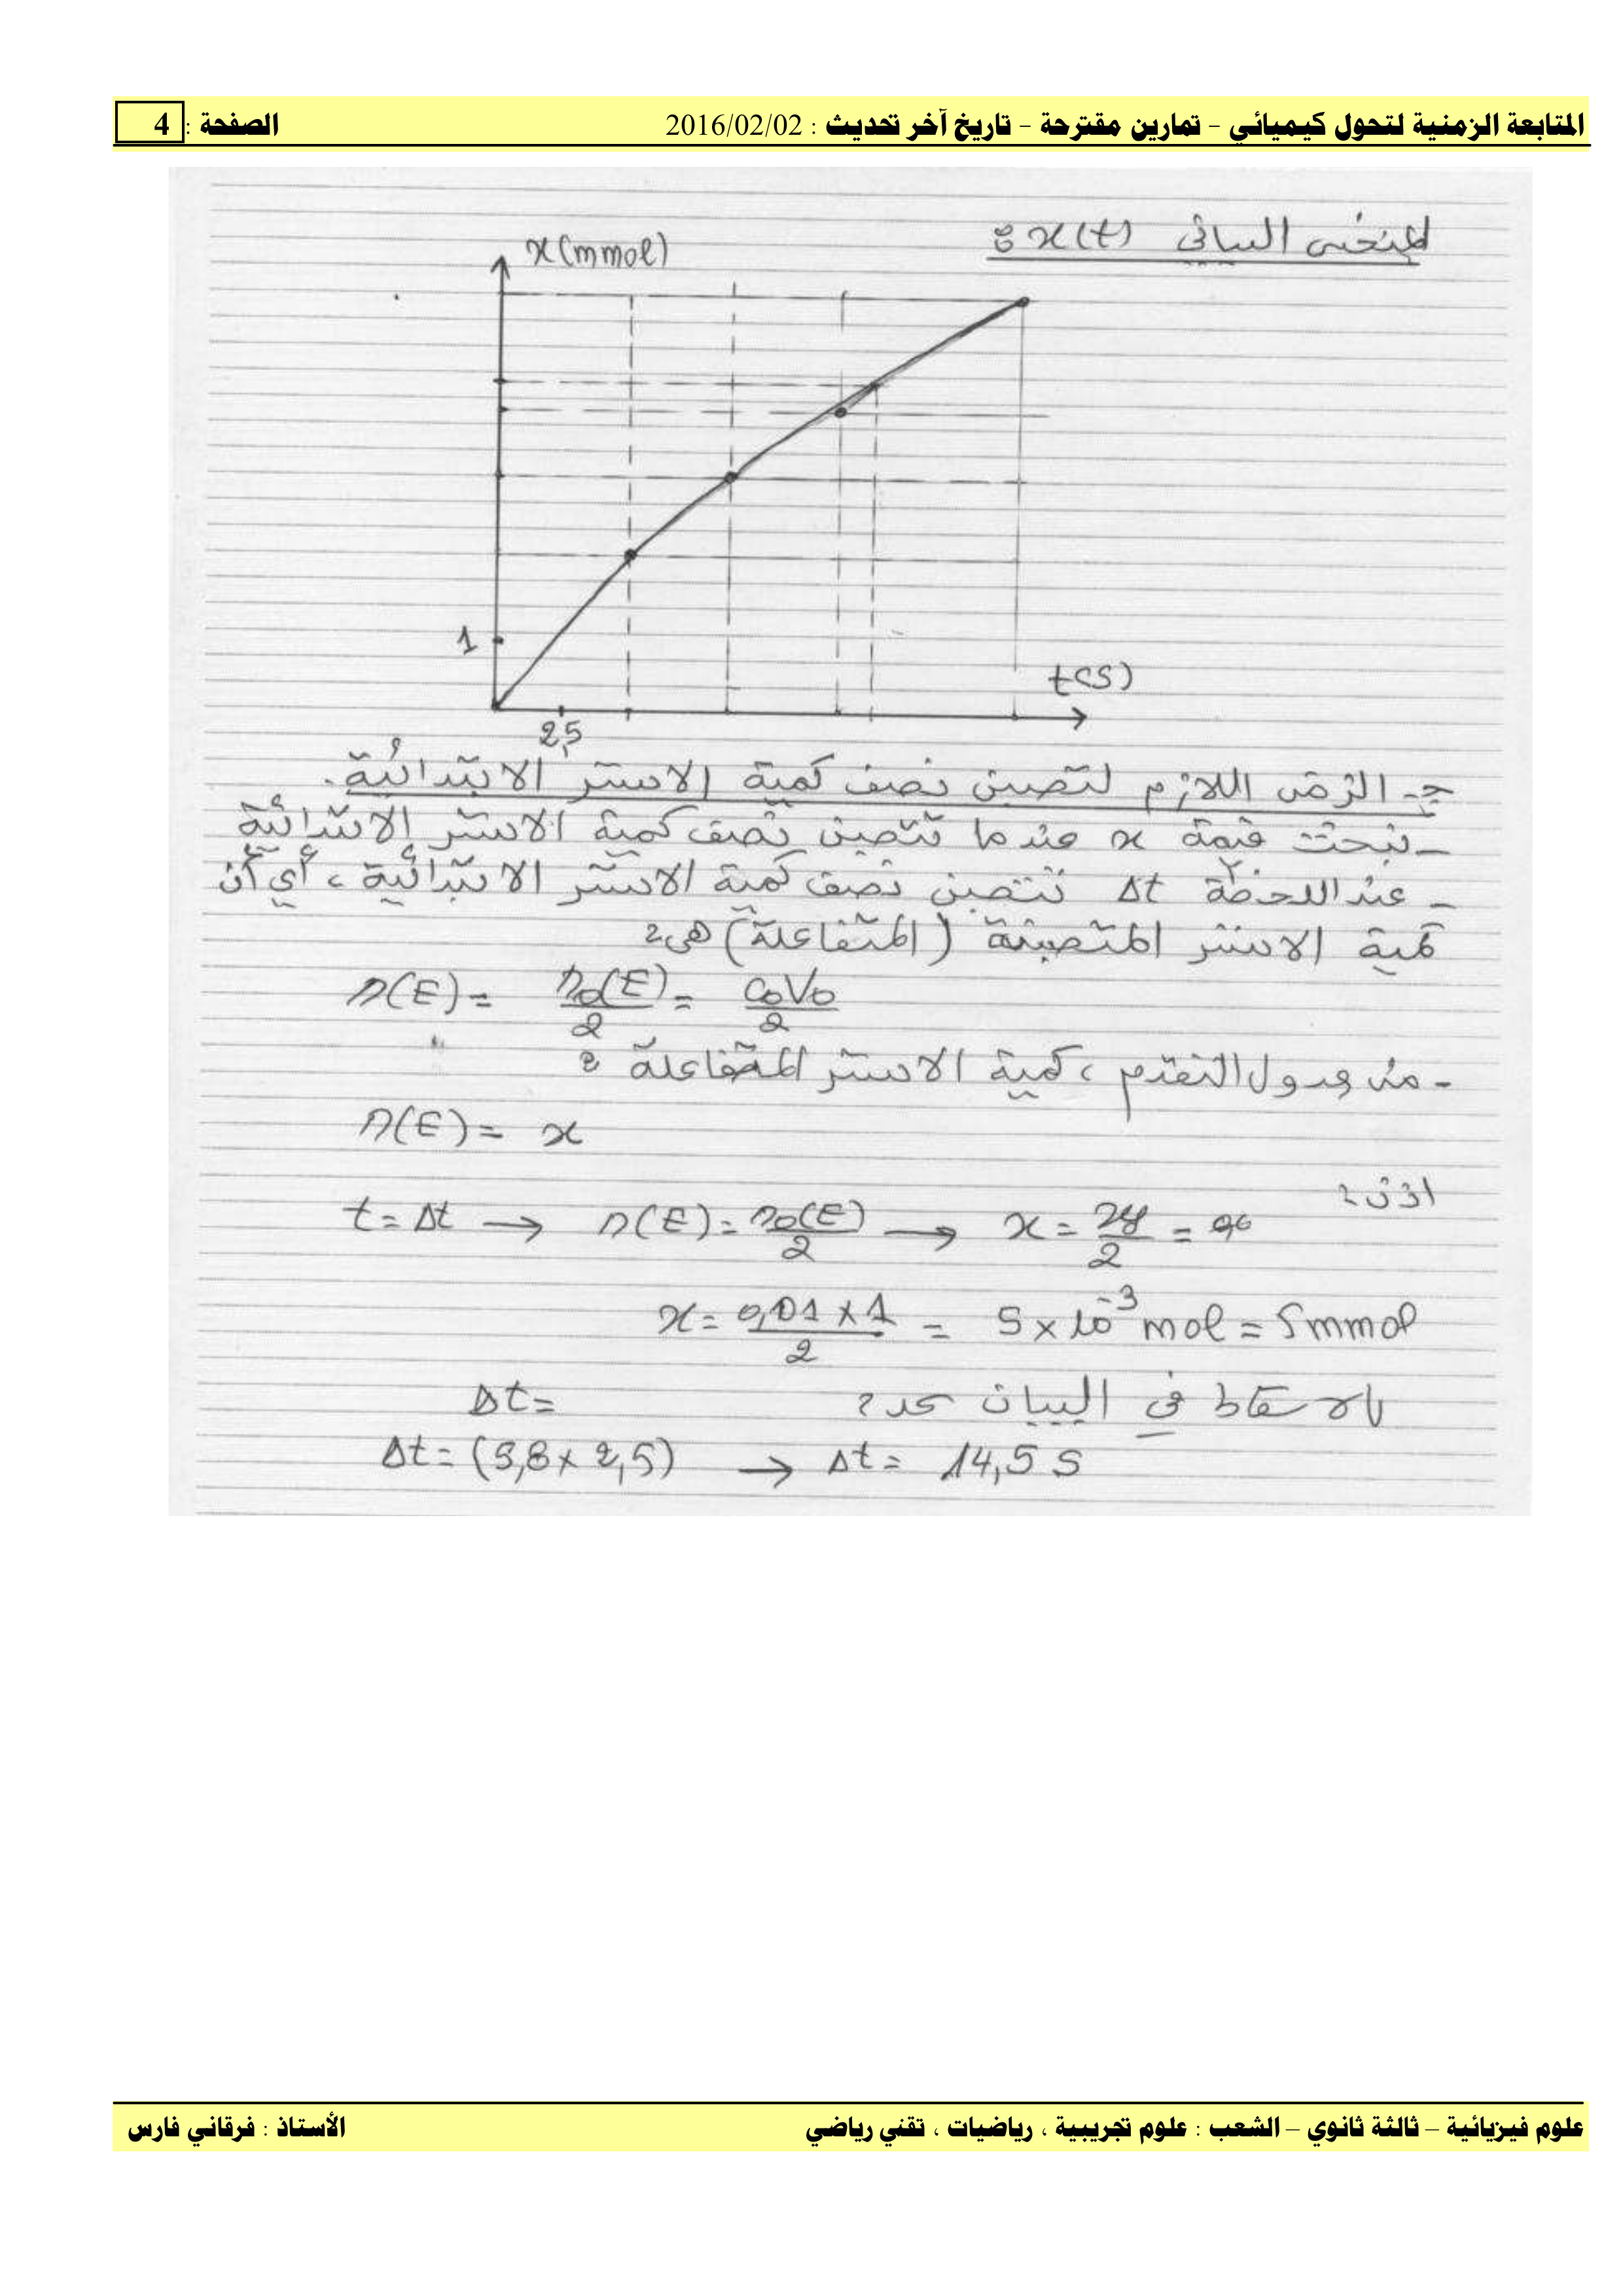 المتابعة الزمنية لتحول كيميائي – تمارين مقترحة – تاريخ آخر تحديث : 2016/02/02
الصفحة : 4
المنحنى البياني x(t) :
x(mmol)
1
t(s)
2,5
جـ- الزمن اللازم لتصبن نصف كمية الاستر الابتدائية.
- نبحث قيمة x عندما تتصبن نصف كمية الاستر الابتدائية
- عند اللحظة Δt تتصبن نصف كمية الاستر الابتدائية ، أي أن
كمية الاستر المتصبنة (المتفاعلة) هي :
n(E) = n₀(E)/2 = C₀V₀/2
- من جدول التقدم ، كمية الاستر المتفاعلة :
n(E) = x
اذن :
t = Δt → n(E) = n₀(E)/2 → x =
x = 0,01 x 1/2 = 5 x 10⁻³ mol = 5 mmol
بالاسقاط في البيان نجد :
Δt =
Δt = (5,8 x 2,5) → Δt = 14,5 s
علوم فيزيائية – ثالثة ثانوي – الشعب : علوم تجريبية ، رياضيات ، تقني رياضي
الأستاذ : فرقاني فارس